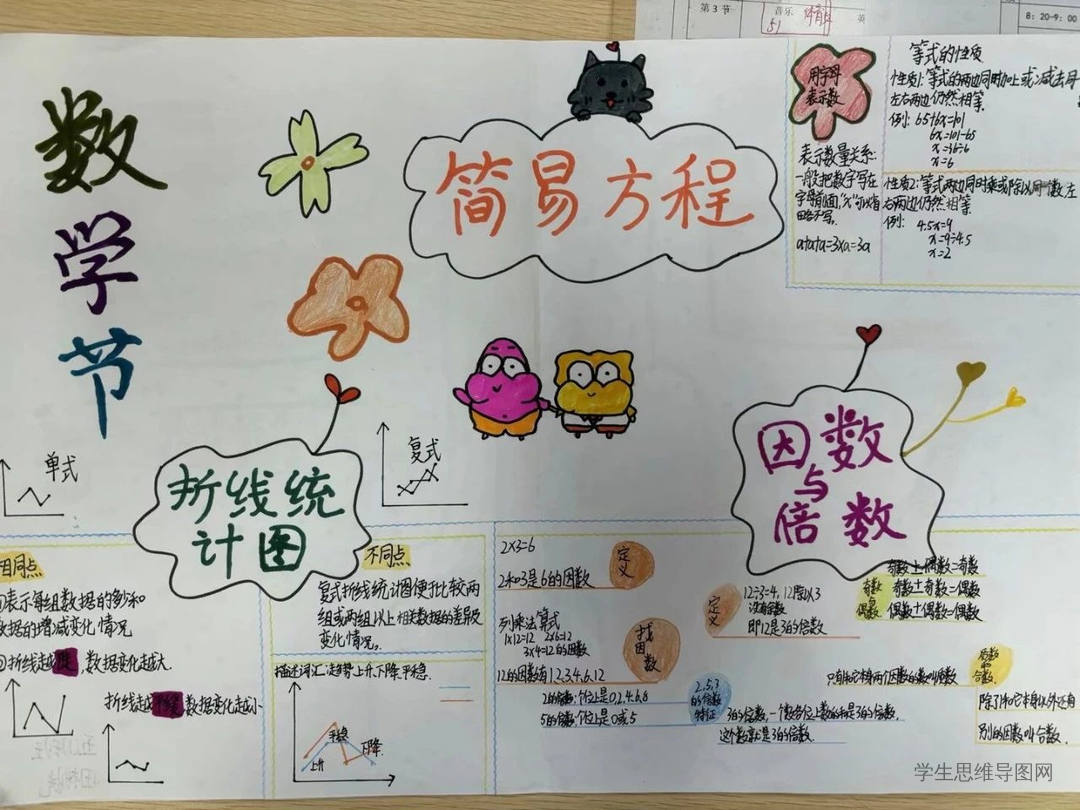 第3节
音乐
体育
51
英
8:20-9:00
数学节
简易方程
用字母
表示数
表示数量关系:
一般把数字写在
字母前面,"×"可以省
略不写.
a+a+a=3×a=3a
等式的性质
性质1:等式的两边同时加上或减去同
左右两边仍然相等.
例: 65+6x=101
6x=101-65
x=36÷6
x=6
性质2:等式两边同时乘或除以同一个数,左
右两边仍然相等.
例: 4.5x=9
x=9÷4.5
x=2
单式
折线统
计图
复式
因数
与
倍数
相同点
①表示每组数据的多少和
数据的增减变化情况
②折线越陡,数据变化越大.
折线越平缓数据变化越小
不同点
复式折线统计图便于比较两
组或两组以上相关数据的差异及
变化情况。
描述词汇:走势:上升、下降、平稳.
平稳
上升
下降
2×3=6
2和3是6的因数
定义
列乘法算式
1×12=12 2×6=12
3×4=12的因数
找因数
12的因数有1,2,3,4,6,12
2的倍数:个位上是0,2,4,6,8
5的倍数:个位上是0或5
2,5,3
的倍数
特征
3的倍数,一个数各位上数的和是3的倍数,
这个数就是3的倍数.
定义
12÷3=4,12除以3
没有余数
即12是3的倍数
奇数
与
偶数
奇数+偶数=奇数
奇数+奇数=偶数
偶数+偶数=偶数
质数
和
合数
只有1和它本身两个因数的数叫质数
除了1和它本身以外还有
别的因数叫合数.
学生思维导图网